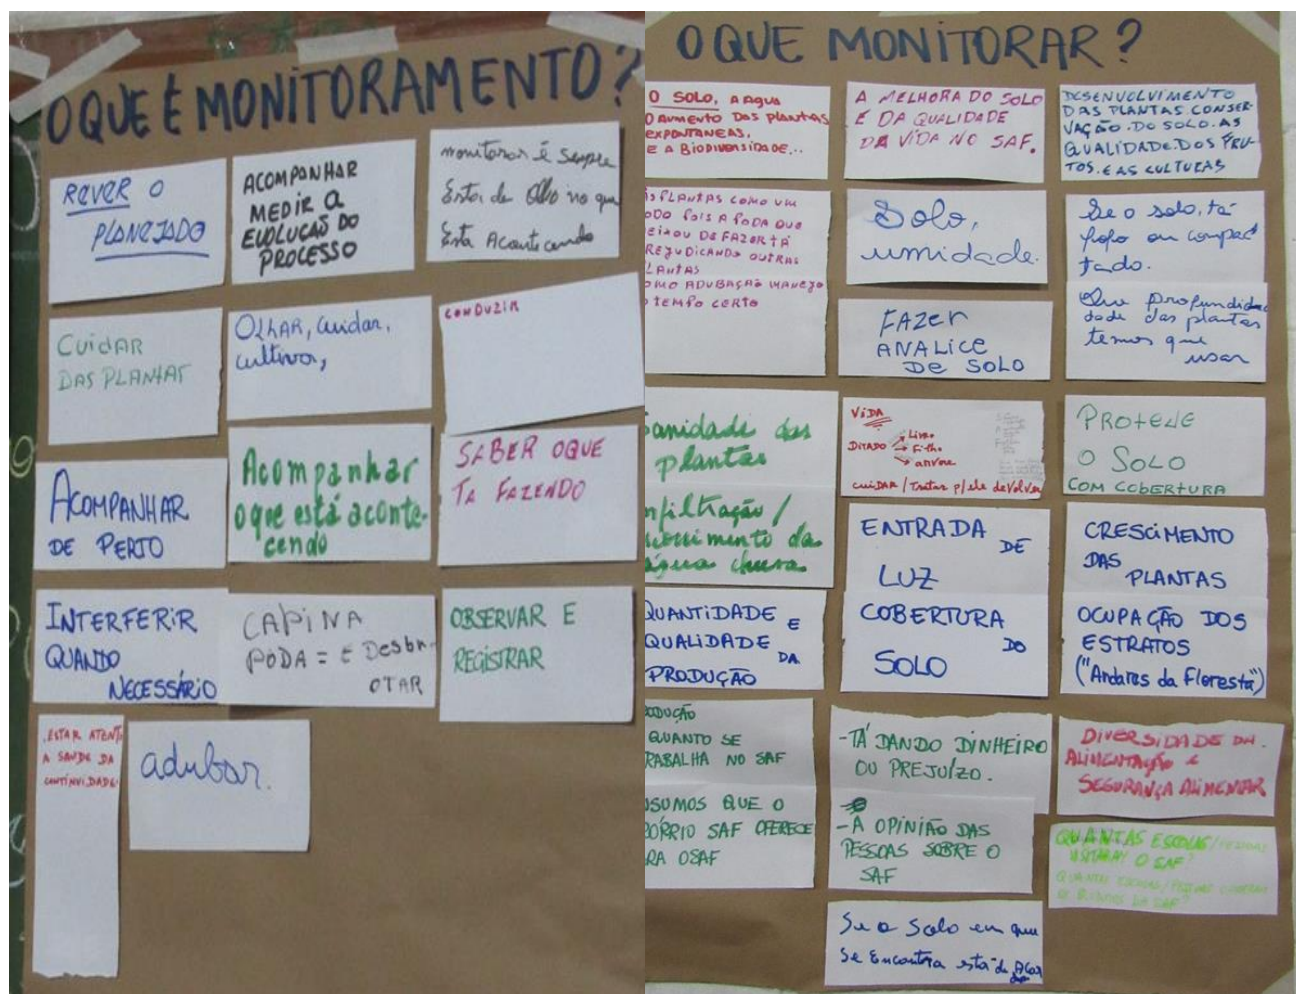 O QUE É MONITORAMENTO?
REVER O
PLANEJADO
ACOMPANHAR
MEDIR A
EVOLUÇÃO DO
PROCESSO
monitorar é sempre
Estar de Olho no que
Está Acontecendo
CUIDAR
DAS PLANTAS
OLHAR, Cuidar,
cultivar,
CONDUZIR
ACOMPANHAR
DE PERTO
Acompanhar
o que está aconte-
cendo
SABER OQUE
TA FAZENDO
INTERFERIR
QUANDO
NECESSÁRIO
CAPINA
PODA = E DESBR-
OTAR
OBSERVAR E
REGISTRAR
.ESTAR ATENTO
A SAUDE DA
CONTINUIDADE
adubar.
O QUE MONITORAR?
O SOLO, A AGUA
O AUMENTO DAS PLANTAS
EXPONTANEAS,
E A BIODIVERSIDADE...
A MELHORA DO SOLO
E DA QUALIDADE
DA VIDA NO SAF.
DESENVOLVIMENTO
DAS PLANTAS CONSER-
VAÇÃO DO SOLO. AS
QUALIDADE DOS FRU-
TOS. E AS CULTURAS
AS PLANTAS COMO UM
ODO POIS A PODA QUE
EIXOU DE FAZER TÁ
REJUDICANDO OUTRAS
LANTAS
OMO ADUBAÇÃO MANEJO
O TEMPO CERTO
Solo,
umidade.
Se o solo, tá
fofo ou compac
tado.
FAZER
ANALICE
DE SOLO
Que profundida
dade das plantas
temos que
usar
anidade das
plantas
nfiltração /
scorrimento da
água chuva
VIDA
DITADO
Livro
Filho
arvore
CUIDAR / Tratar p/ ele devolver
PROTEGE
O SOLO
COM COBERTURA
ENTRADA DE
LUZ
CRESCIMENTO
DAS
PLANTAS
QUANTIDADE E
QUALIDADE DA
PRODUÇÃO
COBERTURA DO
SOLO
OCUPAÇÃO DOS
ESTRATOS
("Andares da Floresta")
ODUÇÃO
QUANTO SE
RABALHA NO SAF
-TÁ DANDO DINHEIRO
OU PREJUÍZO.
DIVERSIDADE DA
ALIMENTAÇÃO E
SEGURANÇA ALIMENTAR
NSUMOS QUE O
RÓPRIO SAF OFERECE
RA OSAF
-A OPINIÃO DAS
PESSOAS SOBRE O
SAF
QUANTAS ESCOLAS/
VISITARAM O SAF?
Se o Solo em que
Se Encontra está de